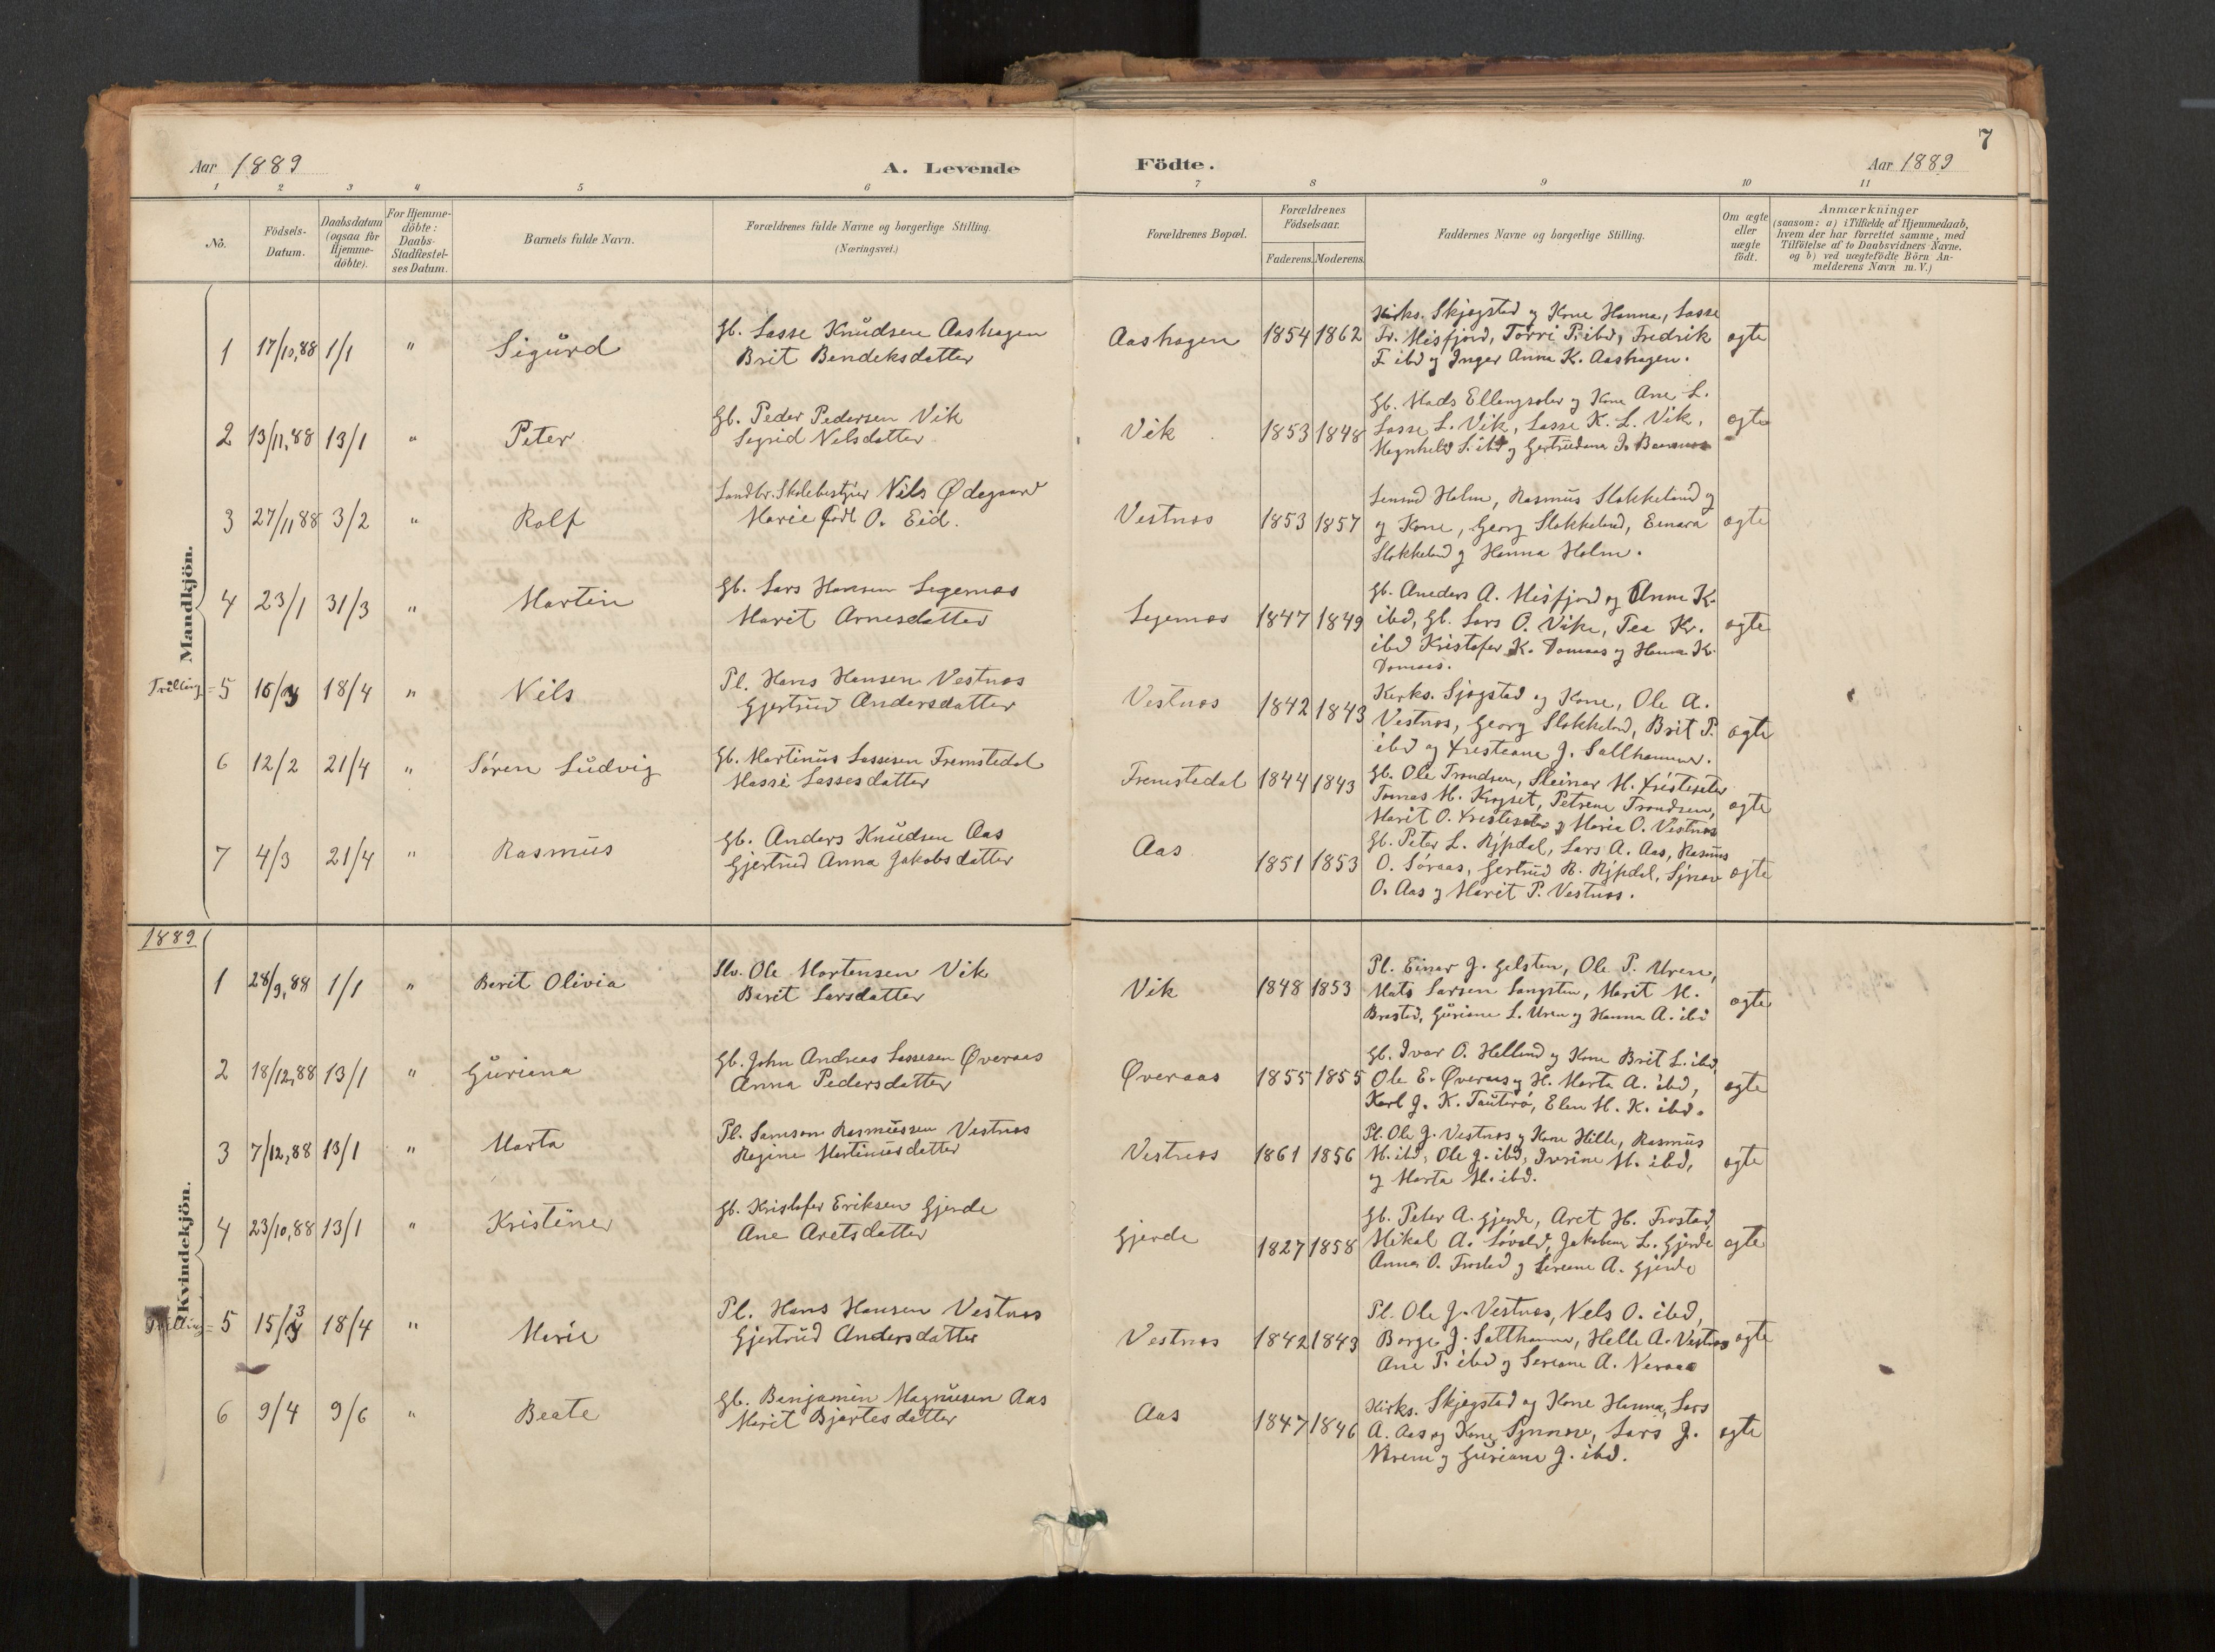 7
Aar 1889
A. Levende
Födte.
Aar 1889
1 2 3 4 5 6 7 8 9 10 11
No.
Födsels-
Datum.
Daabsdatum
(ogsaa for
Hjemme-
döbte).
For Hjemme-
döbte:
Daabs-
Stadfæstel-
ses Datum.
Barnets fulde Navn.
Forældrenes fulde Navne og borgerlige Stilling.
(Næringsvei.)
Forældrenes Bopæl.
Forældrenes
Födselsaar.
Faderens. Moderens.
Faddernes Navne og borgerlige Stilling.
Om ægte
eller
uægte
födt.
Anmærkninger
(saasom: a) i Tilfælde af Hjemmedaab,
hvem der har forrettet samme, med
Tilföielse af to Daabsvidners Navne.
og b) ved uægtefödte Börn An-
melderens Navn m. V.)
Mandkjön.
1 17/10,88 1/1 " Sigurd
Gb. Lasse Knudsen Aashagen
Brit Bendeksdatter
Aashagen 1854 1862
Kirks. Skjegstad og Kone Hanna, Lasse
Fr. Misfjord, Torri P. ibd, Fredrik
F. ibd og Inger Anna K. Aashagen.
ægte
2 13/11,88 13/1 " Peter
Gb. Peder Pedersen Vik
Segrid Nilsdatter
Vik 1853 1848
Gb. Mads Ellengsæter og Kone Ane L.
Lasse L. Vik, Lasse K. L. Vik,
Magnhild S. ibd og Gertrudana J.
ægte
3 27/11,88 3/2 " Rolf
Landbr. Skolebestyrer Nils Ødegaard
Marie født O. Eid.
Vestnæs 1853 1857
Holm, Rasmus Stokkeland og
og Kone, Georg Stokkeland, Einara
Stokkeland og Hanna Holm.
ægte
4 23/1 31/3 " Martin
Gb. Lars Hansen Legernæs
Marit Arnesdatter
Legernæs 1847 1849
Gb. Aneders A. Misfjord og Anne K.
ibd, Gb. Lars O. Vike, Tea Kr.
ibd Kristofer K. Domaas og Hanna K.
Domaas.
ægte
Trilling = 5 15/3 18/4 " Nils
Pl. Hans Hansen Vestnæs
Gjertrud Andersdatter
Vestnæs 1842 1843
Kirks. Sjegstad og Kone, Ole A.
Vestnæs, Georg Stokkeland, Brit P.
ibd og Kristeane J. Salthammer.
ægte
6 12/2 21/4 " Søren Ludvig
Gb. Martinus Lassesen Fremstedal
Massi Lassesdatter
Fremstedal 1844 1843
Gb. Ole Trondsen, Steinar M. Fresteseter
Tomas M. Kroset, Petrine Trondsen,
Marit O. Fresteseter og Maria O. Vestnæs
ægte
7 4/3 21/4 " Rasmus
Gb. Anders Knudsen Aas
Gjertrud Anna Jakobsdatter
Aas 1851 1853
Gb. Peter L. Rypdal, Lars A. Aas, Rasmus
O. Søraas, Gertrud R. Rypdal, Synør
O. Aas og Marit P. Vestnæs.
ægte
1889
Kvindekjön.
1 28/9,88 1/1 " Berit Olivia
Slv. Ole Mortensen Vik
Berit Larsdatter
Vik 1848 1853
Pl. Einar J. Gelsten, Ole P. Uren,
Mats Larsen Langsten, Marit M.
Brastad, Guriane L. Uren og Hanna A. ibd
ægte
2 18/12,88 13/1 " Guriana
Gb. John Andreas Lassesen Øveraas
Anna Pedersdatter
Øveraas 1855 1855
Gb. Ivar O. Helland og Kone Brit L. ibd,
Ole E. Øveraas og H. Marta A. ibd,
Karl J. K. Tautrø, Elen M. K. ibd.
ægte
3 7/12,88 13/1 " Marta
Pl. Samson Rasmussen Vestnæs
Regine Martinusdatter
Vestnæs 1861 1856
Pl. Ole J. Vestnæs og Kone Hille, Rasmus
M. ibd, Ole J. ibd, Iverine M. ibd,
og Marta M. ibd.
ægte
4 23/10,88 13/1 " Kristine
Gb. Kristofer Eriksen Gjerde
Ane Aretsdatter
Gjerde 1827 1858
Gb. Peter A. Gjerde, Aret H. Frostad,
Mikal A. Løvold, Jakobene L. Gjerde
Anna O. Frostad og Sereane A. Gjerde
ægte
Trilling = 5 15/3 18/4 " Marie
Pl. Hans Hansen Vestnæs
Gjertrud Andersdatter
Vestnæs 1842 1843
Pl. Ole J. Vestnæs, Nels O. ibd,
Borge J. Salthammer, Helle A. Vestnæs
Ane T. ibd og Sereane A. Neraas
ægte
6 9/4 9/6 " Beate
Gb. Benjamin Magnusen Aas
Marit Bjertesdatter
Aas 1847 1846
Kirks. Skjegstad og Kone Hanna, Lars
A. Aas og Kone Synnøv, Lars J.
Vrem og Guriane J. ibd.
ægte